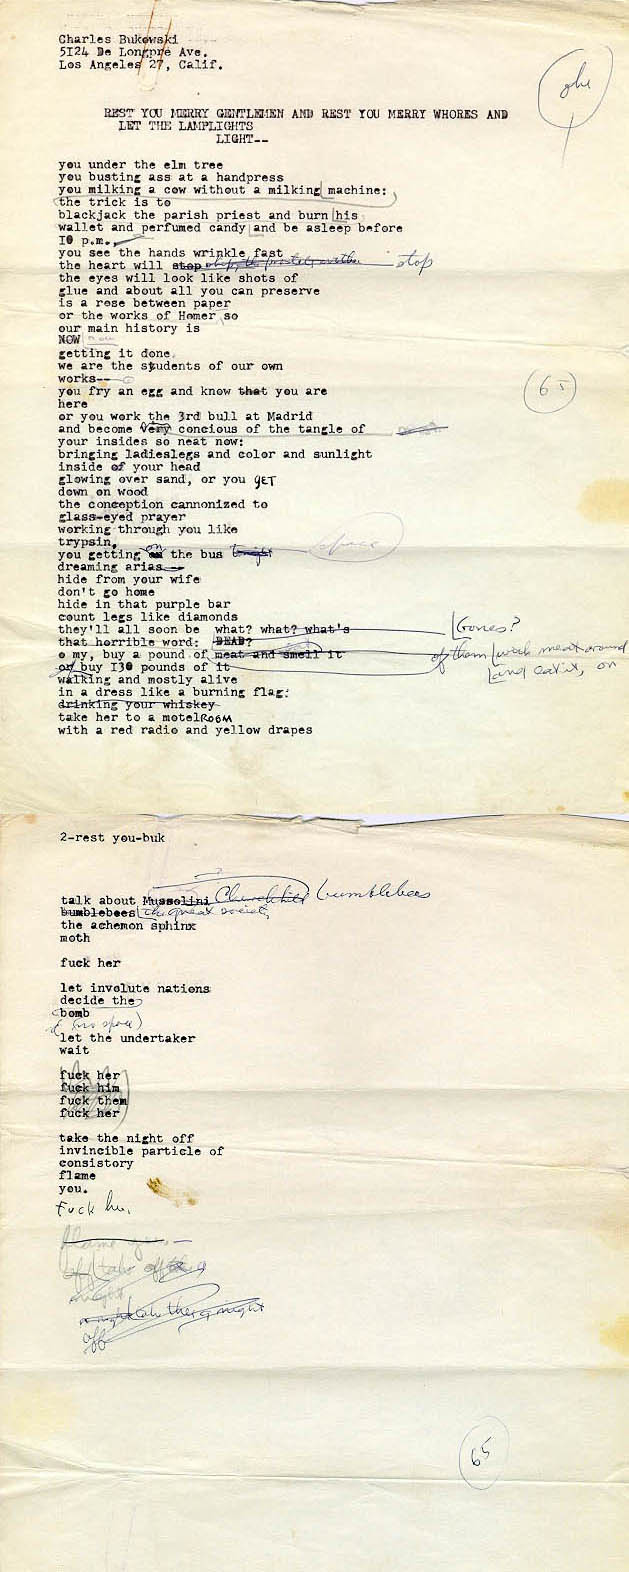 Charles Bukowski
5I24 De Longpre Ave.
Los Angeles 27, Calif.
REST YOU MERRY GENTLEMEN AND REST YOU MERRY WHORES AND
LET THE LAMPLIGHTS
LIGHT--
you under the elm tree
you busting ass at a handpress
you milking a cow without a milking machine:
the trick is to
blackjack the parish priest and burn his
wallet and perfumed candy and be asleep before
I0 p.m.,
you see the hands wrinkle fast
the heart will stop stop
the eyes will look like shots of
glue and about all you can preserve
is a rose between paper
or the works of Homer so
our main history is
NOW now
getting it done.
we are the students of our own
works--
you fry an egg and know that you are
here
65
or you work the 3rd bull at Madrid
and become very concious of the tangle of
your insides so neat now:
bringing ladieslegs and color and sunlight
inside of your head
glowing over sand, or you GET
down on wood
the conception cannonized to
glass-eyed prayer
working through you like
trypsin,
you getting on the bus tonight space
dreaming arias--
hide from your wife
don't go home
hide in that purple bar
count legs like diamonds
they'll all soon be what? what? what's Bones?
that horrible word: DEAD?
o my, buy a pound of meat and smell it of them work meat around
or buy I30 pounds of it and eat it, on
walking and mostly alive
in a dress like a burning flag:
drinking your whiskey
take her to a motel ROOM
with a red radio and yellow drapes
2-rest you-buk
talk about Mussolini Churchill bumblebees
bumblebees the great society
the achemon sphinx
moth
fuck her
let involute nations
decide the
bomb
(no space)
let the undertaker
wait
fuck her
fuck him
fuck them
fuck her
take the night off
invincible particle of
consistory
flame
you.
Fuck her.
off
65